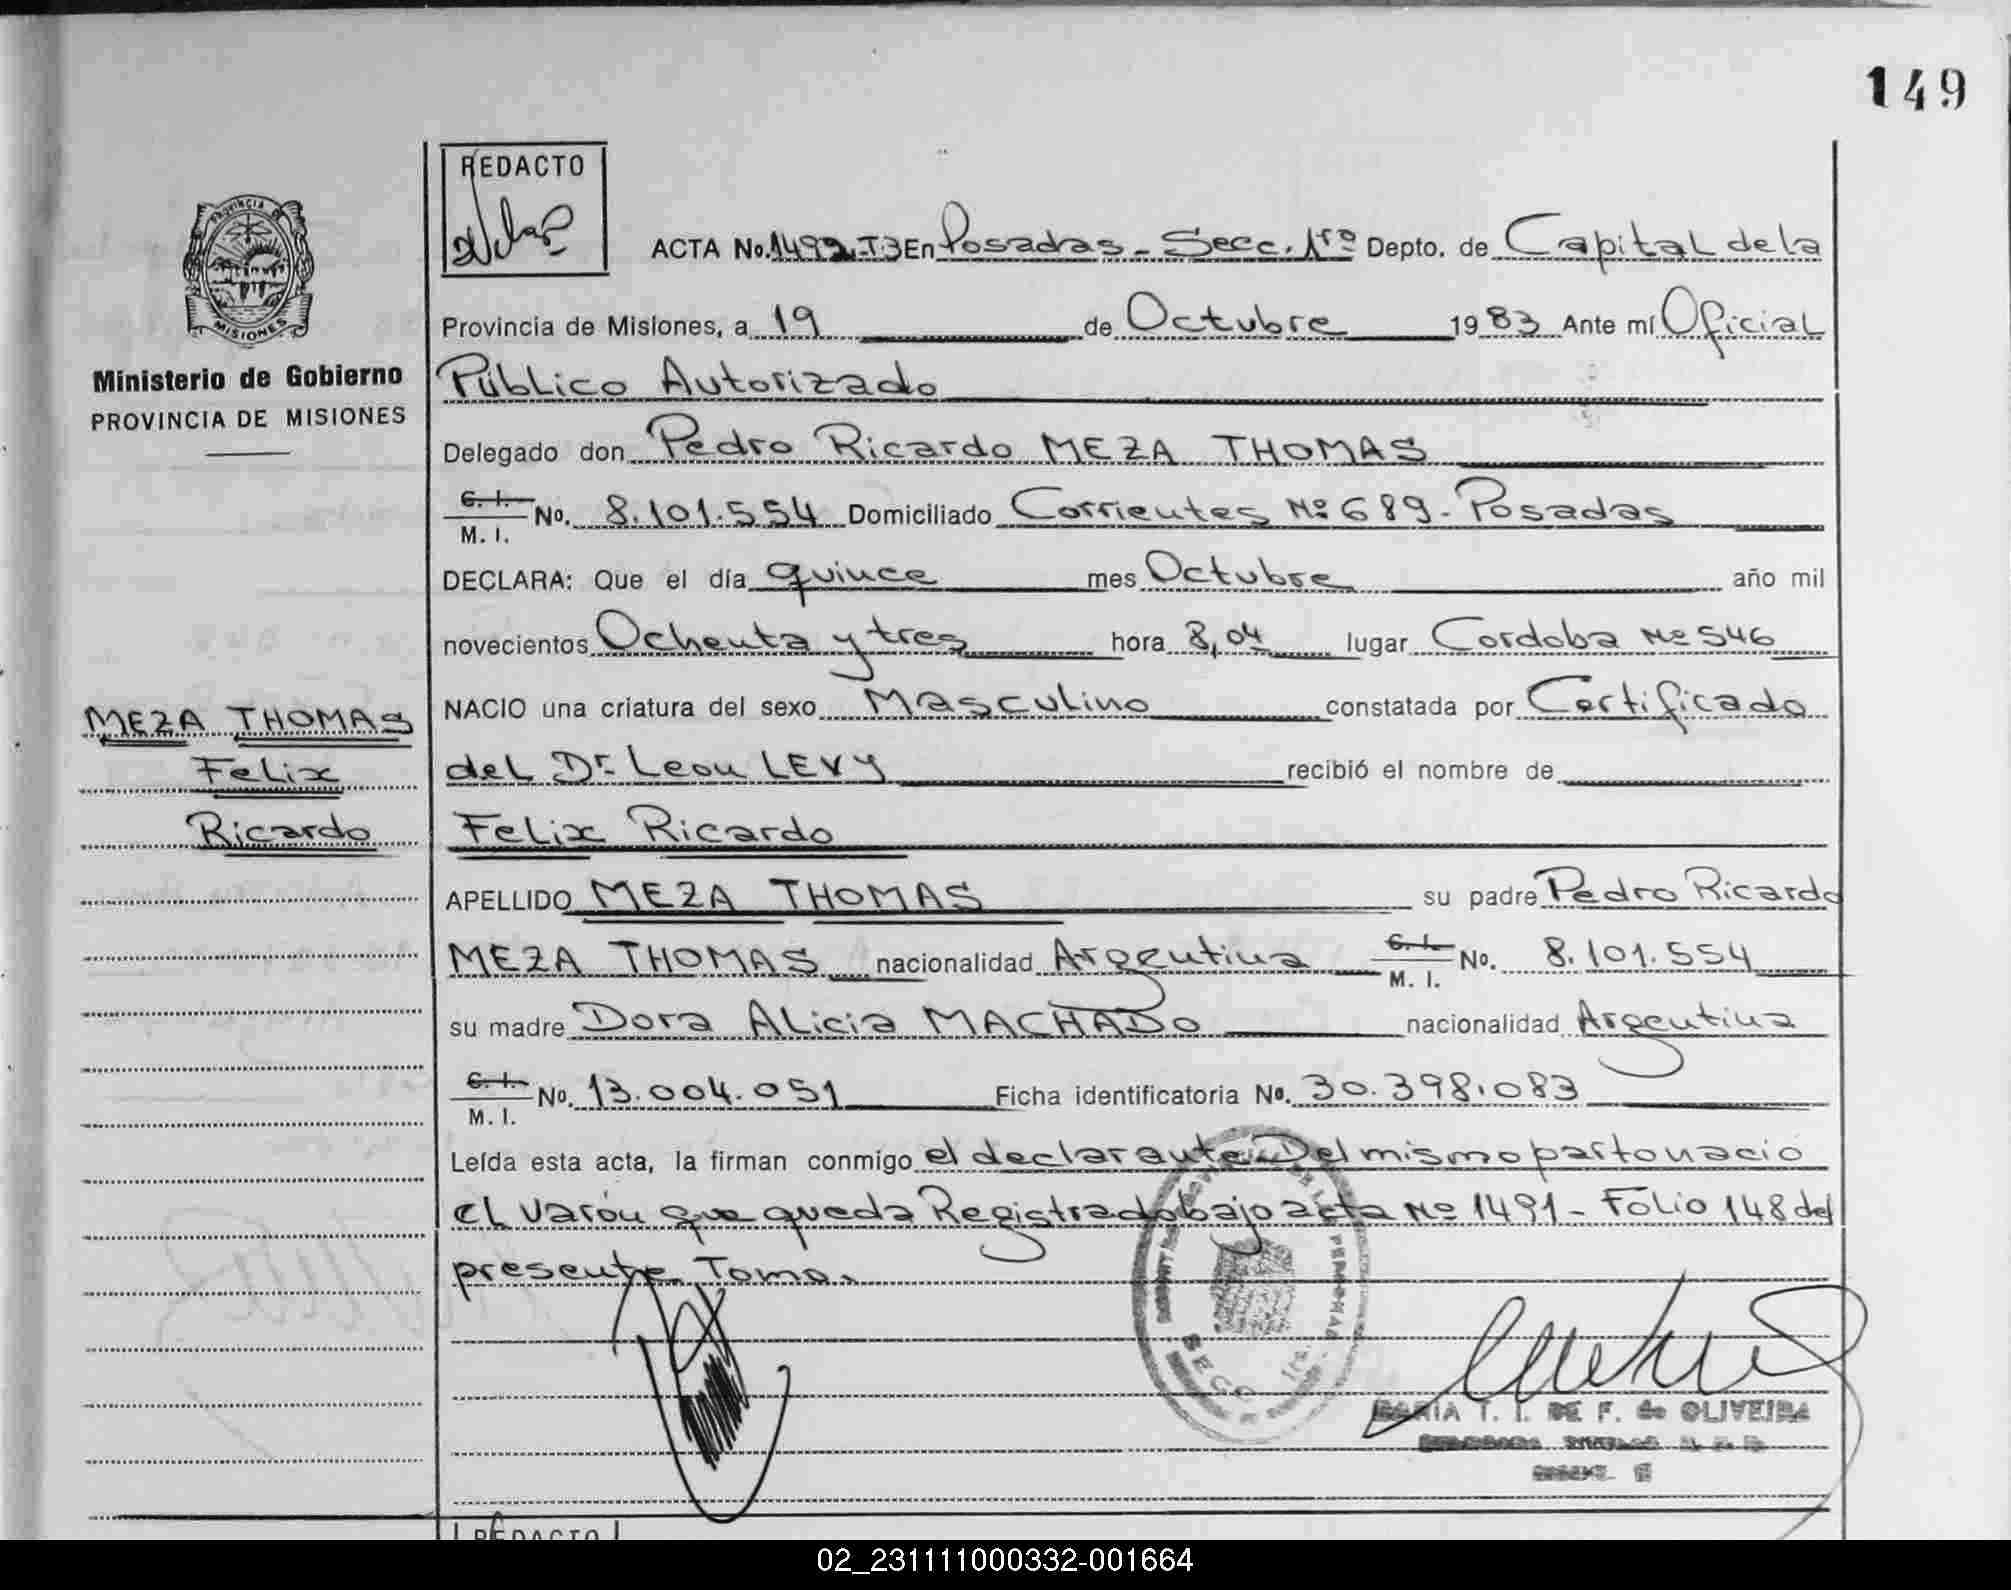 149
REDACTO
PROVINCIA DE
MISIONES
Ministerio de Gobierno
PROVINCIA DE MISIONES
ACTA No. 1492-T3 En Posadas - Secc. 1ra Depto. de Capital de la
Provincia de Misiones, a 19 de Octubre 1983 Ante mí Oficial
Público Autorizado
Delegado don Pedro Ricardo MEZA THOMAS
C. I. / M. I. No. 8.101.554 Domiciliado Corrientes Nº 689 - Posadas
DECLARA: Que el día quince mes Octubre año mil
novecientos Ochenta y tres hora 8,04 lugar Cordoba Nº 546
NACIO una criatura del sexo Masculino constatada por Certificado
del Dr. Leon LEVY recibió el nombre de
Felix Ricardo
APELLIDO MEZA THOMAS su padre Pedro Ricardo
MEZA THOMAS nacionalidad Argentina C. I. / M. I. No. 8.101.554
su madre Dora Alicia MACHADO nacionalidad Argentina
C. I. / M. I. No. 13.004.051 Ficha identificatoria No. 30.398.083
Leída esta acta, la firman conmigo el declarante. Del mismo parto nacio
el varón que queda Registrado bajo acta Nº 1491 - Folio 148 del
presente Tomo.
MEZA THOMAS
Felix
Ricardo
PERSONAS
SECC. 1ra.
MARIA T. I. DE F. de OLIVEIRA
REDACTO
02_231111000332-001664